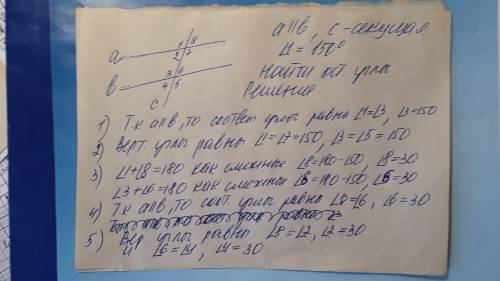 a
1 8
2 7
b
3 6
4 5
c
a||b, c - секущая
∠1 = 150°
Найти ост. углы
Решение
1) Т.к a||b, то соответ углы равны ∠1=∠3, ∠3=150
2) Верт. углы равны ∠1=∠7=150, ∠3=∠5=150
3) ∠1+∠8=180 как смежные ∠8=180-150, ∠8=30
∠3+∠6=180 как смежные ∠6=180-150, ∠6=30
4) Т.к a||b, то соот. углы равны ∠8=∠6, ∠6=30
5) Вер. углы равны ∠8=∠2, ∠2=30
и ∠6=∠4, ∠4=30